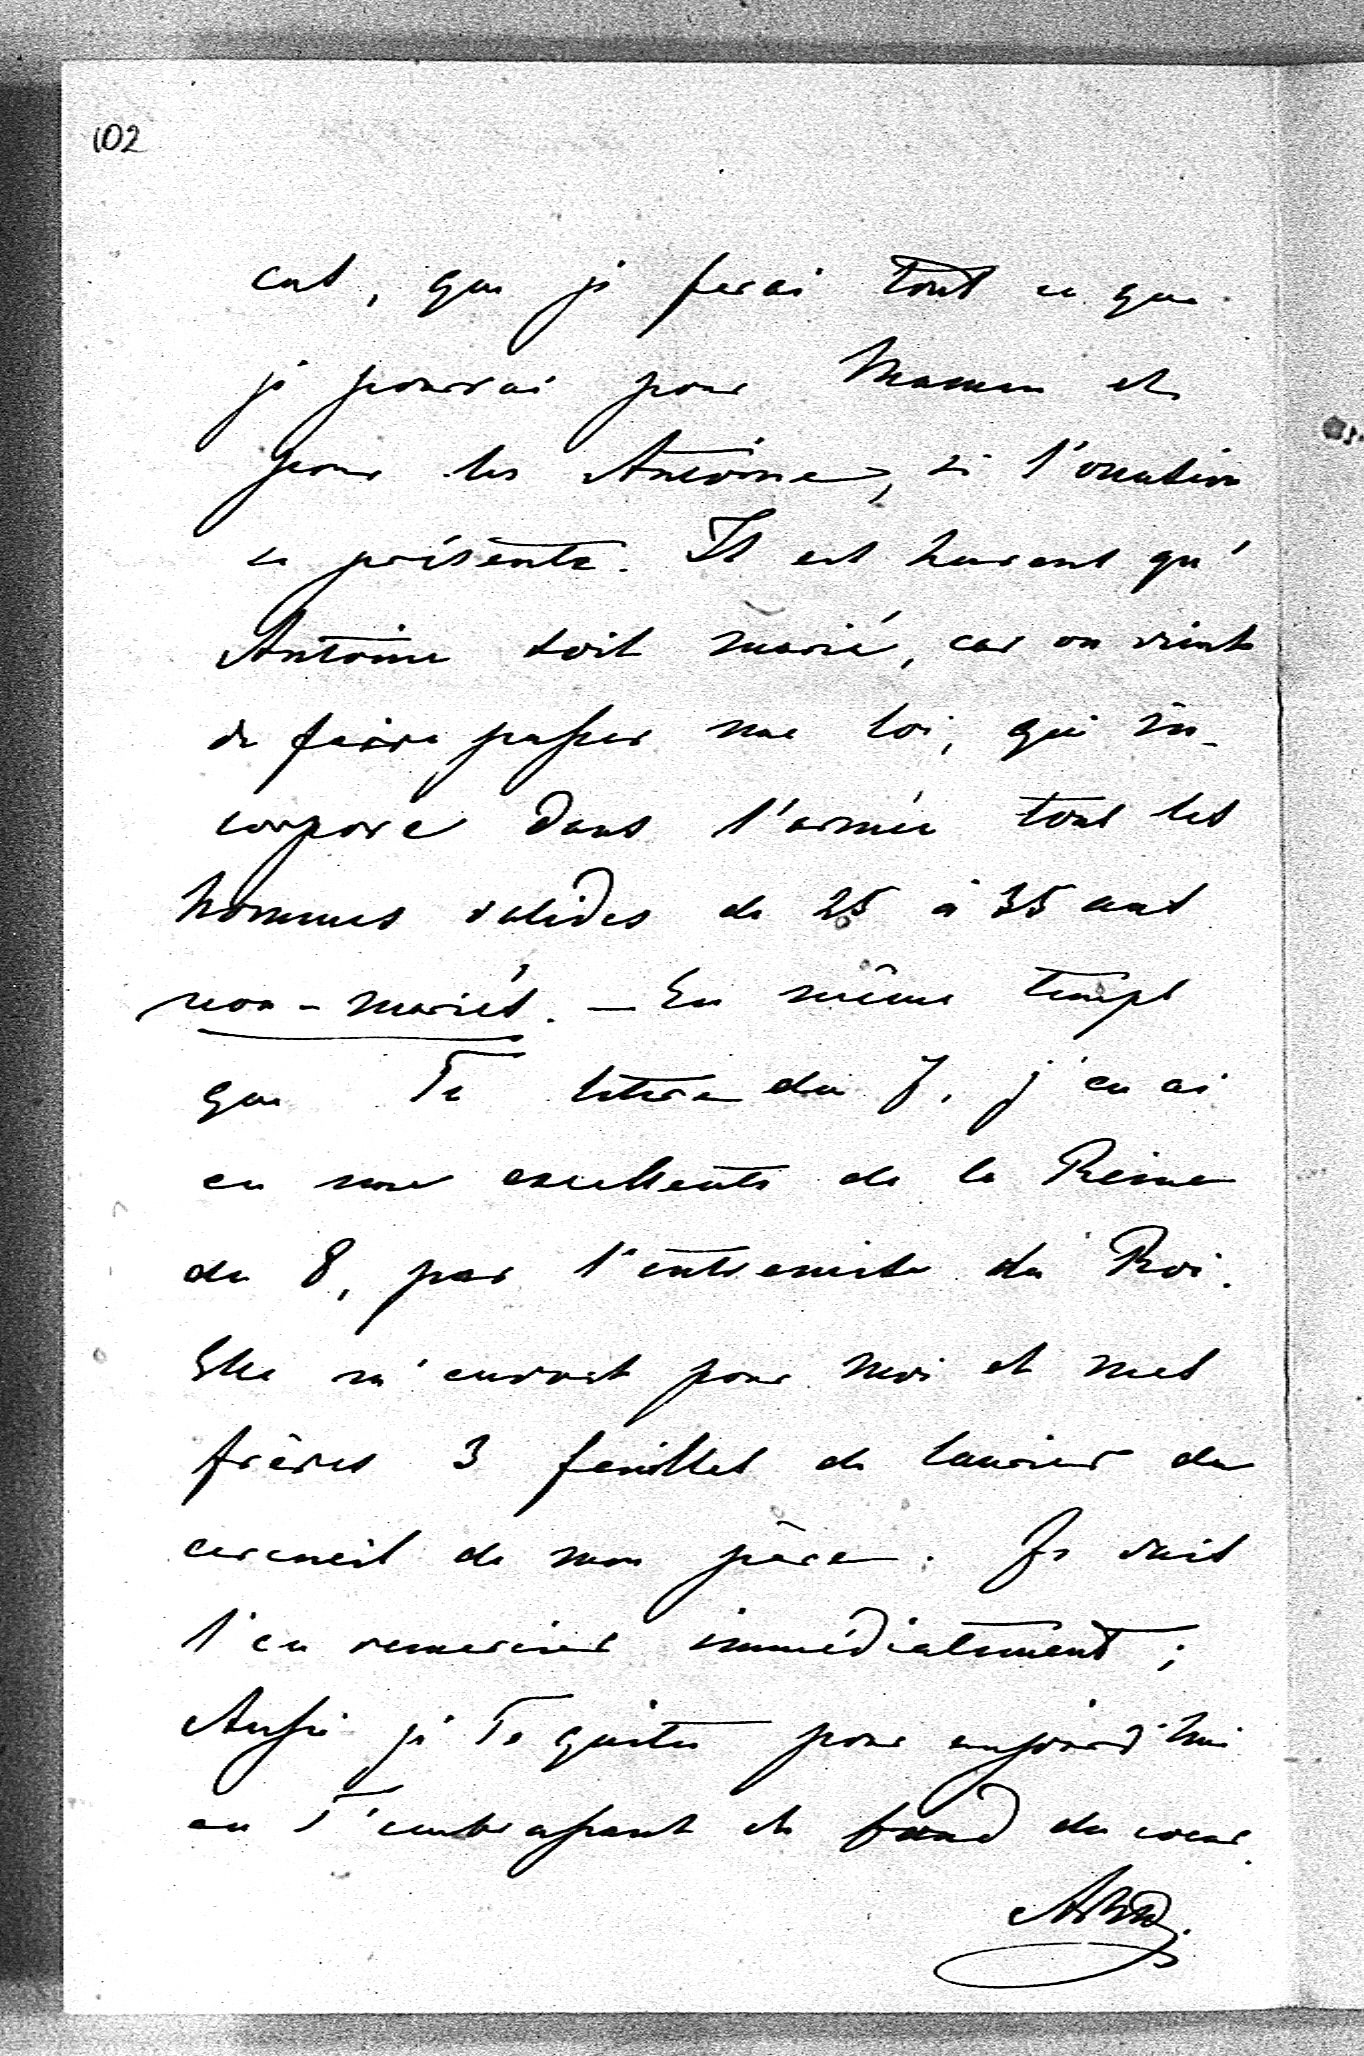 102
cas, que je ferai tout ce que
je pourrai pour Maman et
pour les Antoine, si l'occasion
se présente. Il est heureux qu'
Antoine soit marié, car on vient
de faire passer une loi, qui in-
corpore dans l'armée tous les
hommes valides de 25 à 35 ans
non-mariés. — En même temps
que Ta lettre du 7, j'en ai
eu une excellente de la Reine
du 8, par l'entremise du Roi.
Elle m'envoie pour moi et mes
frères 3 feuilles de laurier du
cercueil de mon père. Je vais
l'en remercier immédiatement;
Aussi je Te quitte pour aujourd'hui
en T'embrassant du fond du coeur.